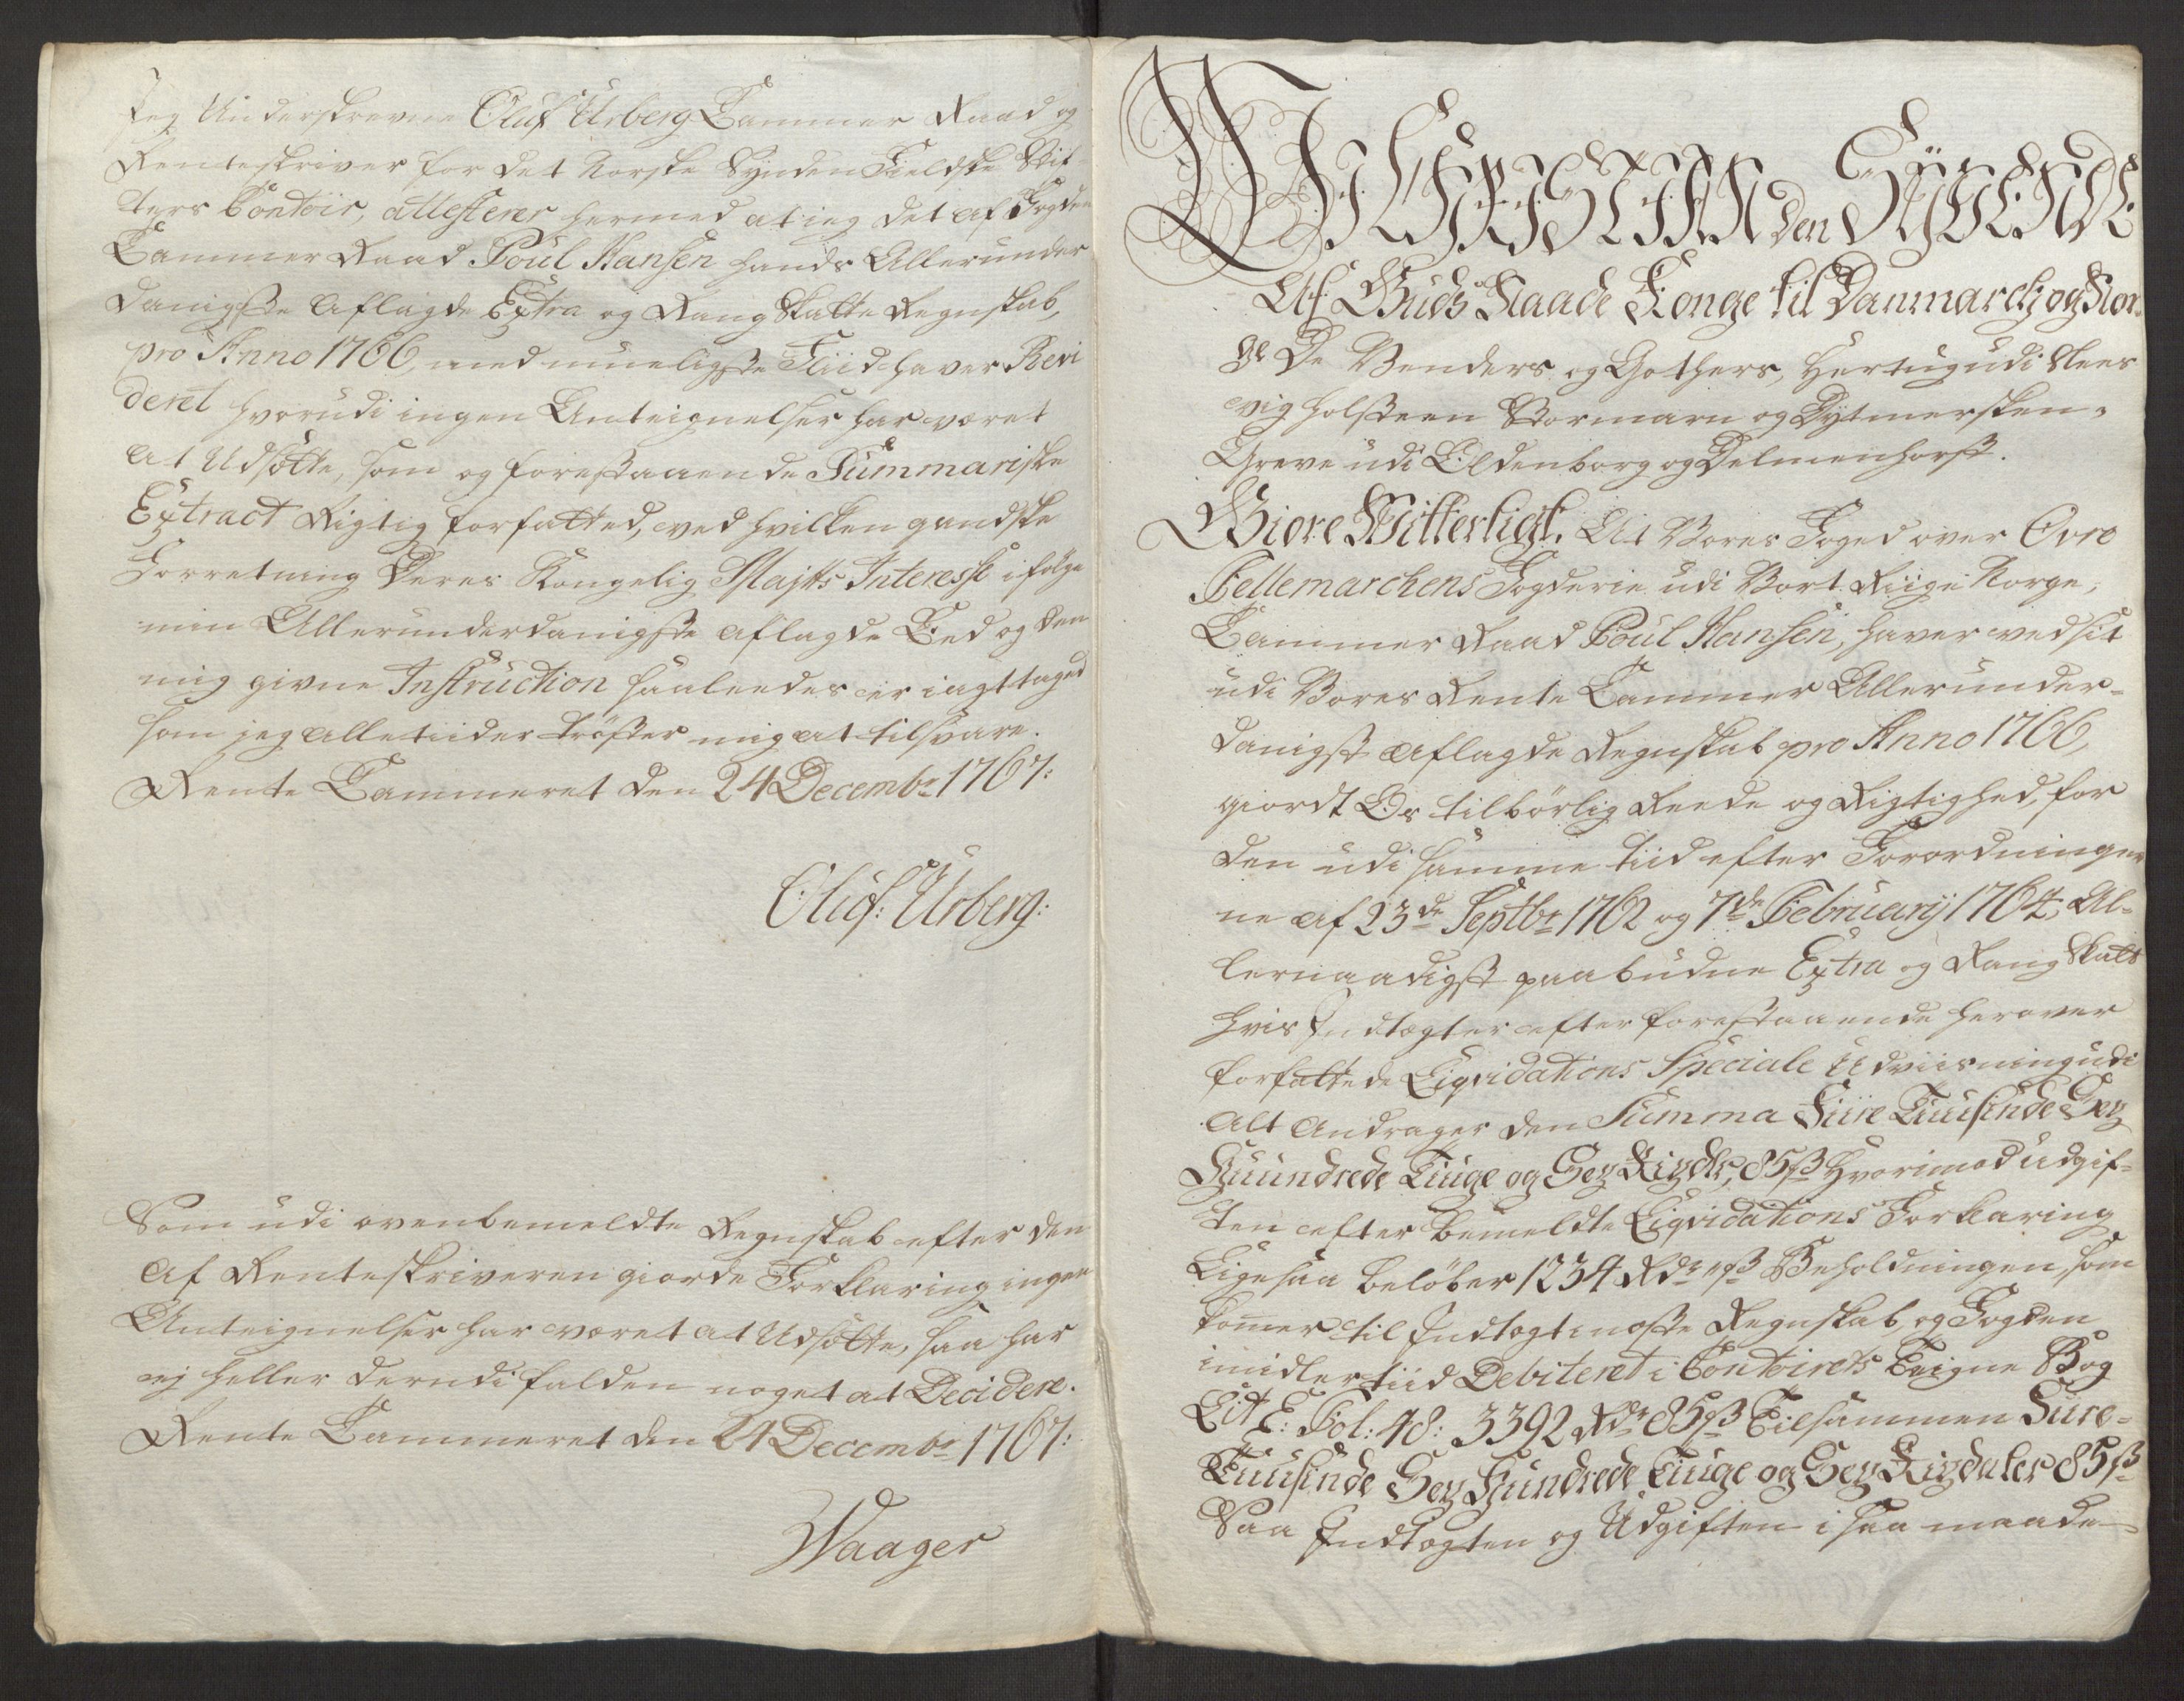 Jeg Underskrevne Oluf Urberg Cammer Raad og
Renteskriver for det Norske Synden Fieldske Stif-
ters Contoir, attesterer hermed at jeg det af Fogden
Cammer Raad Poul Hansen hands Allerunder
danigste aflagde Extra og Rang Skatte Regnskab,
pro Anno 1766, med mueligste Fliid haver Revi
deret hvorudi ingen Anteignelser har været
at Udsætte, som og forestaaende Summariske
Extract Rigtig forfatted, ved hvilken gandske
Forretning Deres Kongelig Majtts Interesse ifølge
min Allerunderdanigste aflagde Eed og den
mig givne Instruction saaleedes er iagttaged
som jeg alle tiider trøster mig at tilsvare.
Rente Cammeret den 24 Decembr 1767:
Oluf: Urberg:
Som udi ovenbemeldte Regnskab efter den
af Renteskriveren giorde Forklaring ingen
Anteignelser har været at Udsætte, saa har
ej heller derudi falden noget at Decidere.
Rente Cammeret den 24 Decembr 1767:
Waager
Wi CHRISTIAN den SYVENDE
Af Guds Naade Konge til Danmarck og Nor-
ge De Venders og Gothers, Hertug udi Slees
vig Holsteen Stormarn og Dytmersken,
Greve udi Oldenborg og Delmenhorst.
Giøre Witterligt, At Vores Foged over Øvre
Tellemarchens Fogderie udi Vort Riige Norge,
Cammer Raad Poul Hansen, haver ved sit
udi Vores Rente Cammer Allerunder-
danigst aflagde Regnskab pro Anno 1766,
giordt Os tilbørlig Reede og Rigtighed, for
den udi samme tiid efter Forordninger
ne af 23de Septbr 1762 og 7de February 1764, Al-
lernaadigst paabudne Extra og Rang Skatt
hvis Indtægter efter forestaaende herover
forfattede Liqvidations Speciale Udviisning udi
alt andrager den Summa Fiire Tuusinde Sex
Huundrede Tiuge og Sex Rigdlr, 85 ß Hvorimod udgif-
ten efter bemeldte Liqvidations Forklaring
Ligesaa beløber 1234 Rdr ß Beholdningen, som
kommer til Indtægt i næste Regnskab, og Fogden
imidlertiid Debiteret i Contoirets Teigne Bog
Lit E: Fol: 48: 3392 Rdr 85 ß Tilsammen Fiire-
Tuusinde Sex Hundrede Tiuge og Sex Rigdaler 85 ß
Saa Indtægten og Udgiften i saa maade